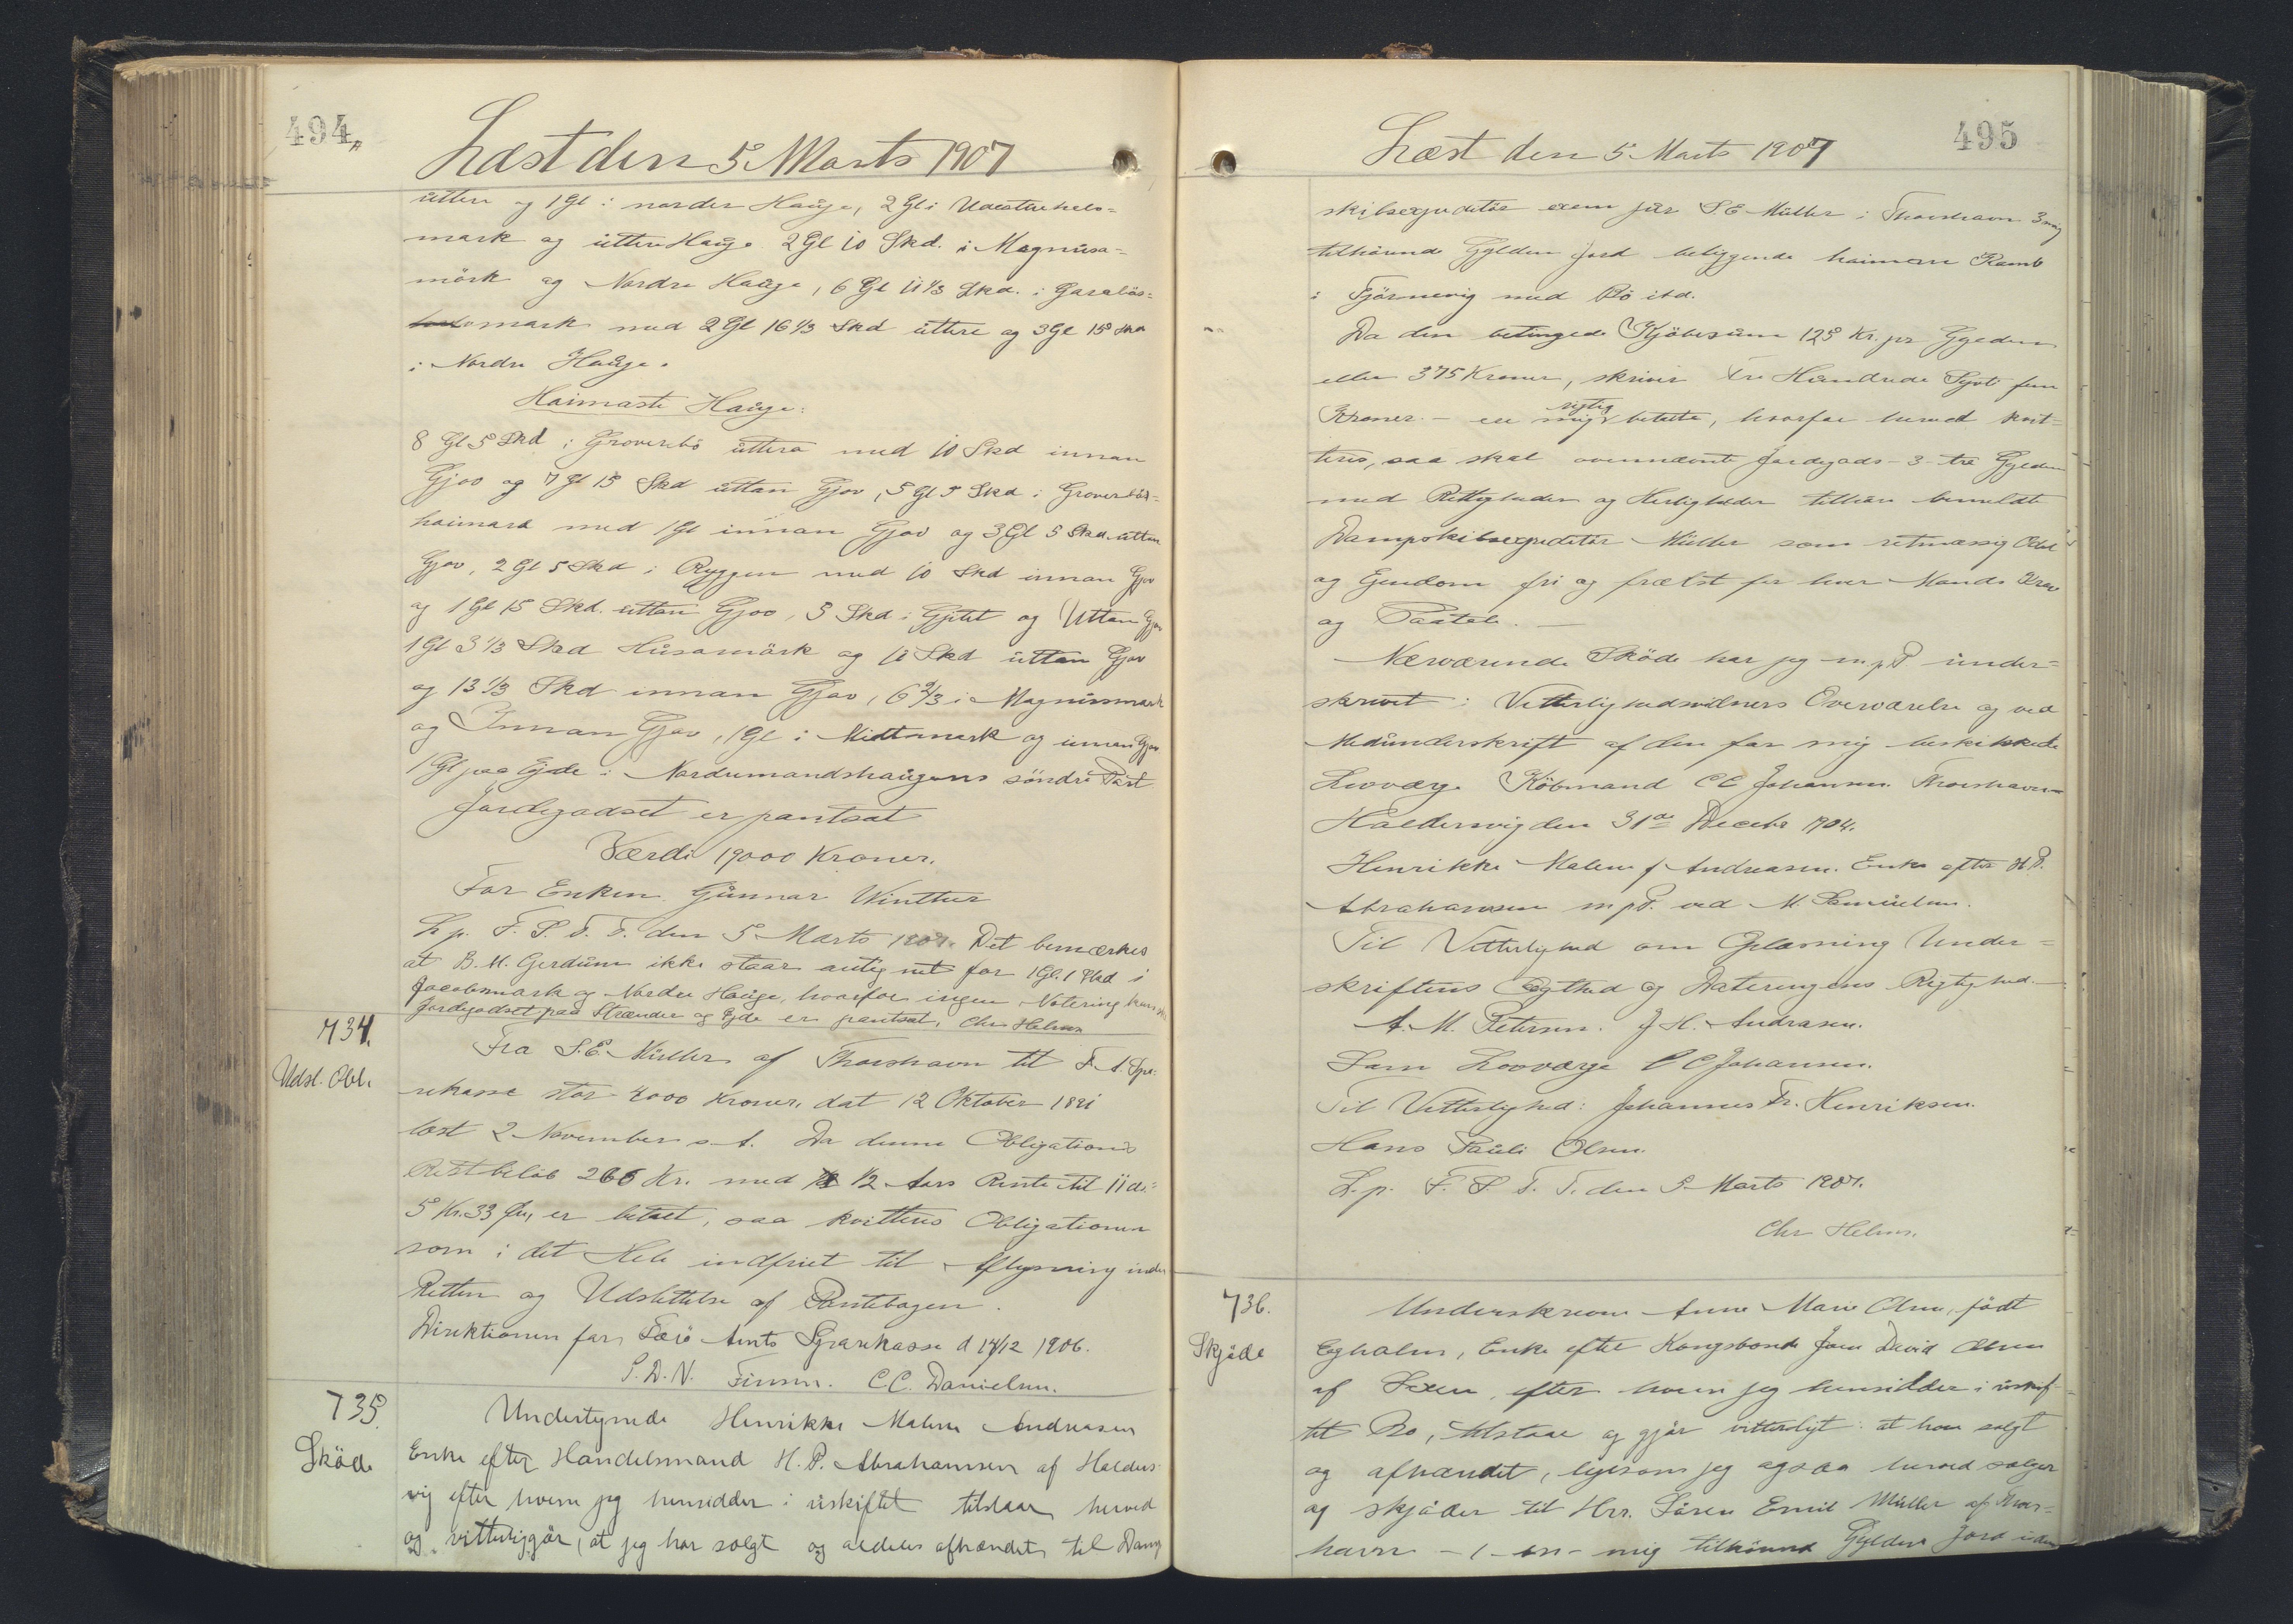 494
Læst den 5 Marts 1907
uttere og 1 Gl i norder Hauge, 2 Gl i
mark og uttere Hauge 2 Gl 10 Skd. i Magnusa-
mörk og Nordre Hauge, 6 Gl 11 1/3 Skd. i Garalös-
mark med 2 Gl 16 1/3 Skd uttere og 3 Gl 15 Skd
i Nordre Hauge.
Haimaste Hauge:
8 Gl 5 Skd i Groverebö uttera med 10 Skd innan
Gjov og 7 Gl 15 Skd uttan Gjov, 5 Gl 5 Skd i
haimara med 1 Gl innan Gjov og 3 Gl 5 Skd uttan
Gjov, 2 Gl 5 Skd i Ryggen med 10 Skd innan Gjov
og 1 Gl 15 Skd. uttan Gjov, 5 Skd i Gjitet og Uttan Gjov
1 Gl 3 1/3 Skd Husamörk og 10 Skd uttan Gjov
og 13 1/3 Skd innan Gjov, 6 2/3 i Magnusmark
og Innan Gjov, 1 Gl i Midtmark og innan Gjov
1 Gl paa Ejde i Nordumandshaugens söndre Part
Jordegodset er pantsat
Værdi 19000 Kroner.
For Enken Gunnar Winther
L. p. F. S. T. T. den 5 Marts 1907. Det bemærkes
at B. M. Gerdum ikke staar antegnet for 1 Gl. 1 Skd i
Jacobsmark og Nordre Hauge, hvorfor ingen Notering kan ske
Jordegodset paa Strænder og Ejde er pantsat. Chr Helms
734.
Udsl. Obl.
Fra S. E. Müller af Thorshavn til F. A. Spa-
rekasse stor 4000 Kroner, dat 12 Oktober 1891
læst 2 November s. A. Da denne Obligations
Restbeløb 266 Kr. med 1/2 Aars Rente til 11 ds:
5 Kr. 33 Øre, er betalt, saa kvitteres Obligationen
som i det Hele indfriet til Aflysning inden
Retten og Udslettelse af Pantebogen.
Direktionen for Færø Amts Sparekasse d 14/12 1906.
P. D. V. Finsen. C. C. Danielsen.
735.
Sköde
Undertegnede Henrikke Malene Andreasen
Enke efter Handelsmand H. P. Abrahamsen af Halders-
vig efter hvem jeg hensidder i uskiftet tilstaar herved
og vitterliggör, at jeg har solgt og aldeles afhændet til Damp
495
Læst den 5 Marts 1907
skibsexpeditör exam jur S. E. Müller i Thorshavn 3 mig
tilhörende Gylden Jord beliggende haimara Ramb
i Tjörnevig med Bö itd.
Da den betingede Kjöbesum 125 Kr. pr Gylden
eller 375 Kroner, skriver Tre Hundrede Syvti fem
Kroner. — er mig rigtig betalte, hvorfor herved kvit-
teres, saa skal ovennævnte Jordegods - 3 - tre Gylden
med Rettigheder og Herligheder tilhöre bemeldte
Dampskibsexpeditör Müller som retmæssig Odel
og Ejendom fri og frælst for hver Mands Krav
og Paatale. —
Nærværende Sköde har jeg m. p. P under-
skrevet i Vitterlighedsvidners Overværelse og ved
Medunderskrift af den for mig beskikkede
Lovværge Köbmand C C Johansen Thorshavn
Haldersvig den 31te Decebr 1904.
Henrikke Malene f Andreasen. Enke efter H. P.
Abrahamsen m. p. P. ved M. Samuelsen.
Til Vitterlighed om Oplæsning Under-
skriftens Ægthed og Dateringens Rigtighed. —
A. M. Petersen. J H. Andreasen.
Som Lovværge C C Johansen.
Til Vitterlighed: Johannes Fr. Henriksen.
Hans Pauli Olsen.
L. p. F. S. T. T. den 5 Marts 1907.
Chr Helms.
736.
Skjöde
Underskrevne Anne Marie Olsen, födt
Egholm, Enke efter Kongsbonde Joen David Olsen
af efter hvem jeg hensidder i uskif-
tet Bo, tilstaar og gjör vitterligt: at have solgt
og afhændet, ligesom jeg ogsaa herved sælger
og skjöder til Hrr. Sören Emil Müller af Thors-
havn - 1 - en - mig tilhörende Gylden Jord uden